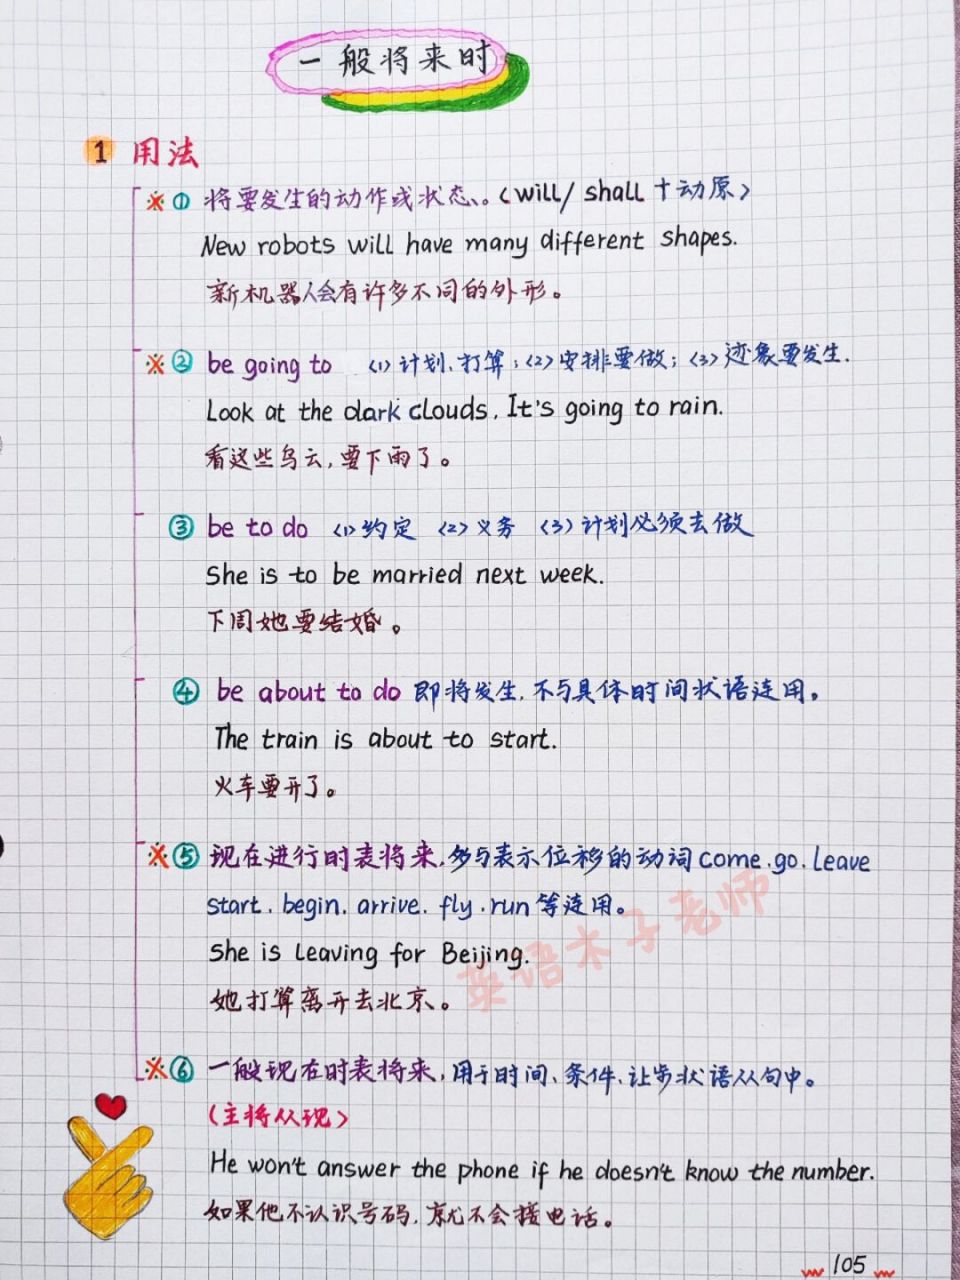 一般将来时
1 用法
※① 将要发生的动作或状态。(will/ shall +动原)
New robots will have many different shapes.
新机器人会有许多不同的外形。
※② be going to (1)计划、打算;(2)安排要做;(3)迹象要发生.
Look at the dark clouds. It's going to rain.
看这些乌云,要下雨了。
③ be to do (1)约定 (2)义务 (3)计划必须去做
She is to be married next week.
下周她要结婚。
④ be about to do 即将发生,不与具体时间状语连用。
The train is about to start.
火车要开了。
※⑤ 现在进行时表将来,多与表示位移的动词come.go.leave
start.begin.arrive.fly.run等连用。
She is leaving for Beijing.
她打算离开去北京。
英语木子老师
※⑥ 一般现在时表将来,用于时间、条件、让步状语从句中。
(主将从现)
He won't answer the phone if he doesn't know the number.
如果他不认识号码,就不会接电话。
105